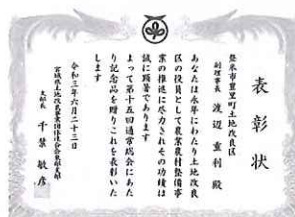 表彰状
登米市豊里町土地改良区
副理事長 渡辺重利殿
あなたは永年にわたり土地改良
区の役員として農業農村整備事
業の推進に尽力されその功績は
誠に顕著であります
よって第十五回通常総会にあた
り記念品を贈りこれを表彰いた
します
令和三年六月二十三日
宮城県土地改良事業団体連合会東部支部
支部長 千葉敏彦